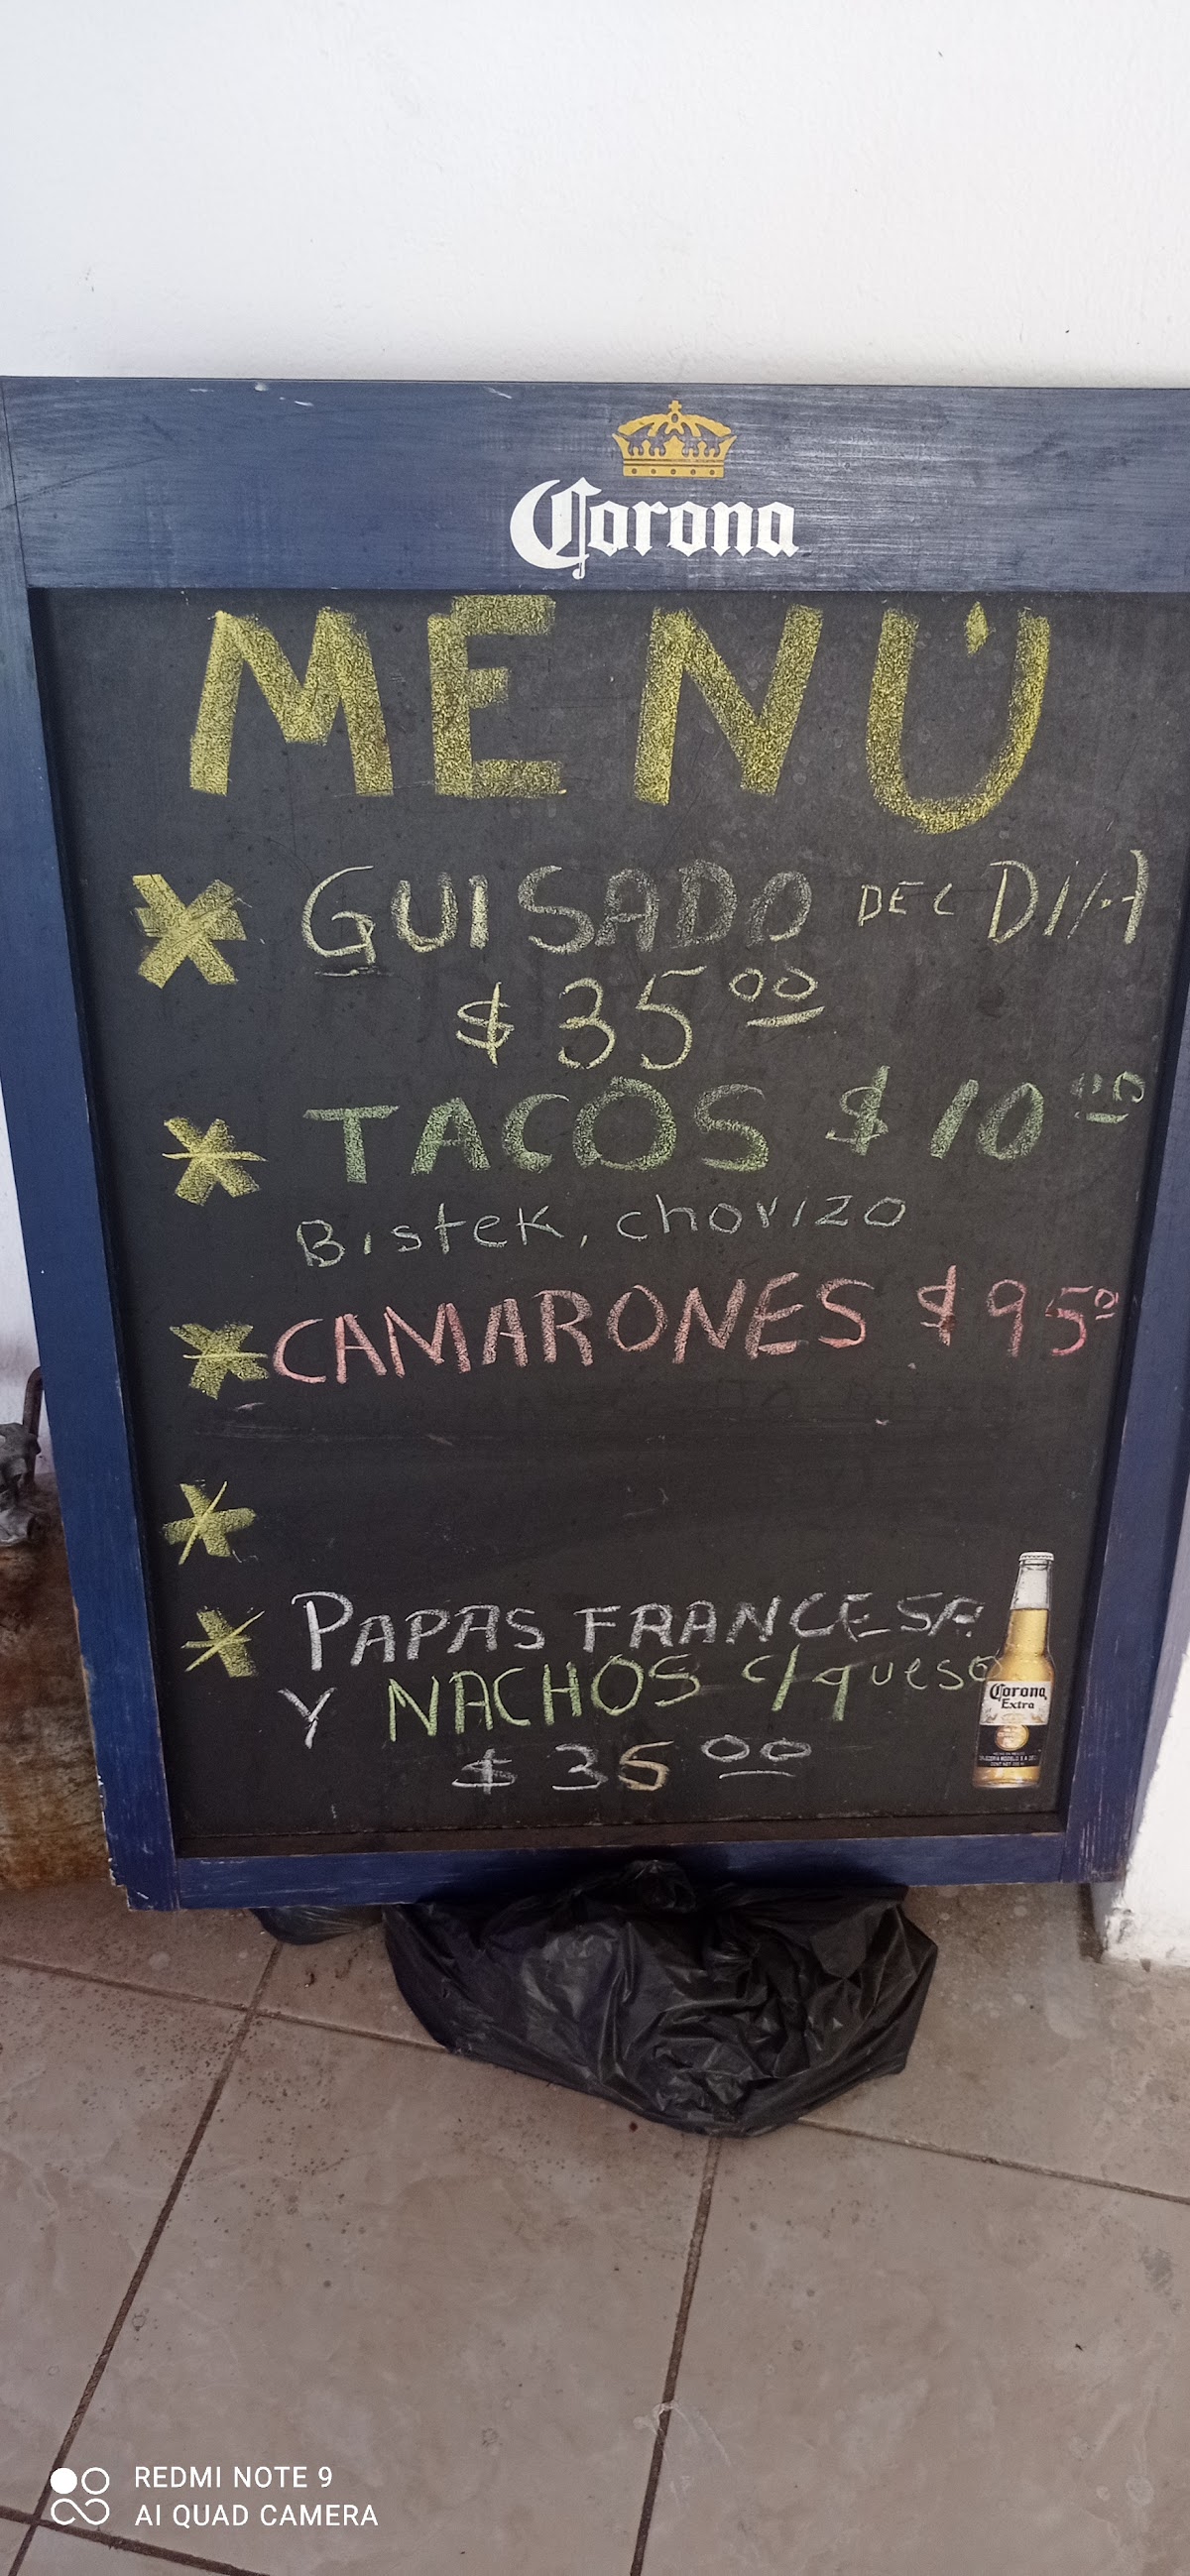 Corona
MENÚ
* GUISADO DEL DIA
$35.00
* TACOS $10.00
Bistek, chorizo
* CAMARONES $95.0
*
* PAPAS FRANCESA
Y NACHOS c/queso
$35.00
Corona
Extra
REDMI NOTE 9
AI QUAD CAMERA